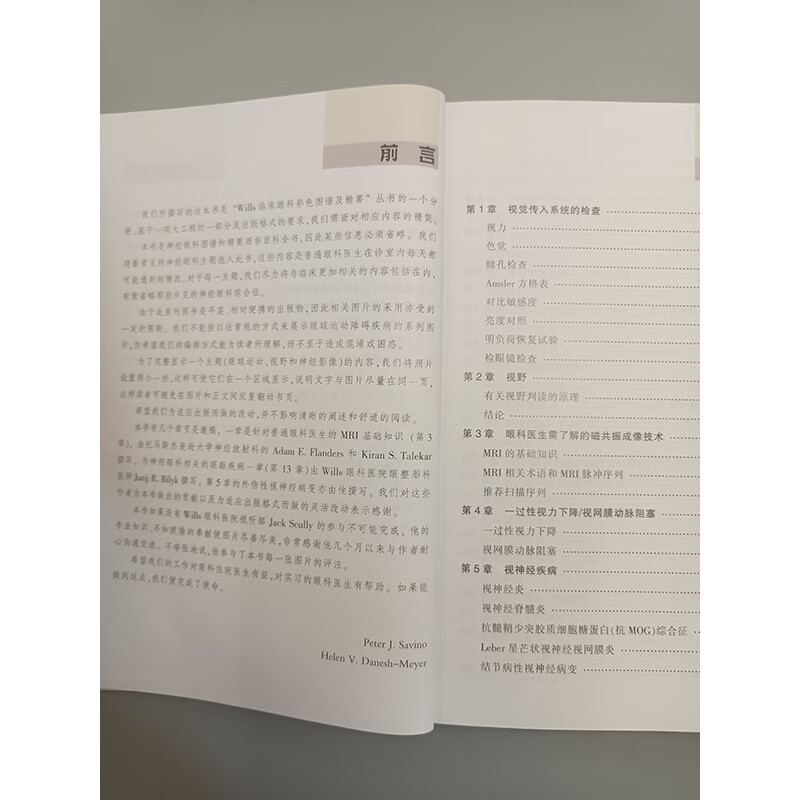 前 言
我们所撰写的这本书是“Wills临床眼科彩色图谱及精要”丛书的一个分
册,基于一项大工程的一部分及出版格式的要求,我们需面对相应内容的精简。
本书是神经眼科图谱和精要而非百科全书,因此某些信息必须省略。我们
将最常见的神经眼科主题选入此书,这些内容是普通眼科医生在诊室内每天都
可能遇到的情况。对于每一主题,我们尽力将与临床更加相关的内容包括在内,
有意省略那些少见的神经眼科综合征。
由于此系列图书是平装,相对便携的出版物,因此相关图片的采用亦受到
一定的限制。我们不能按以往常规的方式来展示眼球运动障碍疾病的系列图
片,但希望我们的编排方式能为读者所理解,而不至于造成混淆或困惑。
为了完整显示一个主题(眼球运动、视野和神经影像)的内容,我们将照片
设置得小一些,这样可使它们在一个区域显示,说明文字与图片尽量在同一页,
这样读者可避免在图片和正文间反复翻动书页。
希望我们为适应出版而做的改动,并不影响清晰的阐述和舒适的阅读。
本书有几个章节是邀稿,一章是针对普通眼科医生的 MRI 基础知识(第3
章),由托马斯杰斐逊大学神经放射科的 Adam E. Flanders 和 Kiran S. Talekar
撰写。与神经眼科相关的眼眶疾病一章(第 13 章)由 Wills 眼科医院眼整形科
医师 Jurij R. Bilyk 撰写。第5章的外伤性视神经病变亦由他撰写。我们对这些
作者为本书做出的贡献以及为适应出版格式而做的灵活改动表示感谢。
本书如果没有 Wills 眼科医院视听部 Jack Scully 的参与不可能完成。他的
专业知识、不知疲倦的奉献使图片尽善尽美,非常感谢他几个月以来与作者耐
心沟通交流。不夸张地说,他参与了本书每一张图片的评注。
希望我们的工作对眼科住院医生有益,对实习的眼科医生有帮助。如果能
做到这点,我们便完成了使命。
Peter J. Savino
Helen V. Danesh–Meyer
第1章 视觉传入系统的检查
视力
色觉
瞳孔检查
Amsler 方格表
对比敏感度
亮度对照
明负荷恢复试验
检眼镜检查
第2章 视野
有关视野判读的原理
结论
第3章 眼科医生需了解的磁共振成像技术
MRI 的基础知识
MRI 相关术语和 MRI 脉冲序列
推荐扫描序列
第4章 一过性视力下降/视网膜动脉阻塞
一过性视力下降
视网膜动脉阻塞
第5章 视神经疾病
视神经炎
视神经脊髓炎
抗髓鞘少突胶质细胞糖蛋白(抗 MOG)综合征
Leber 星芒状视神经视网膜炎
结节病性视神经病变